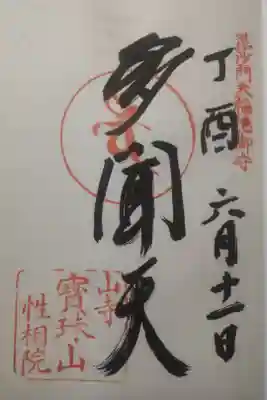 毘沙門天
丁酉 六月十一日
多聞天
山寺
寶珠山
性相院